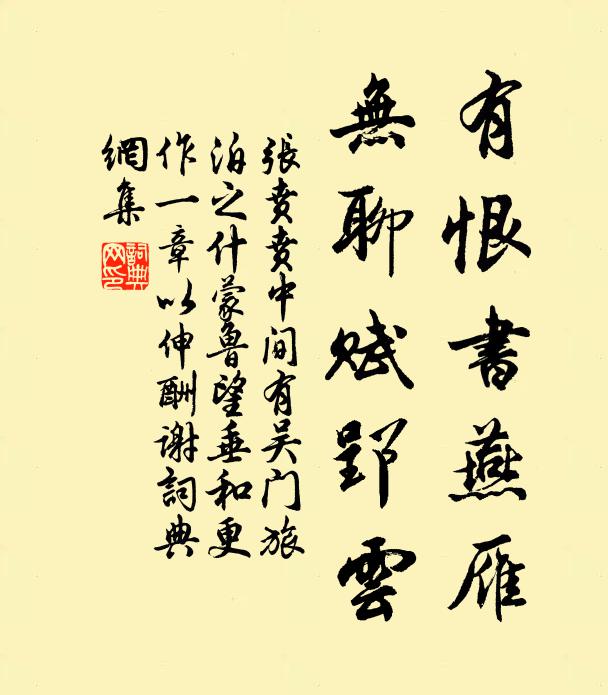 有恨書燕雁
無聊賦郢雲
張賁賁中間有吴门旅
泊之什蒙魯望垂和更
作一章以伸酬谢詞典
網集
詞典网印